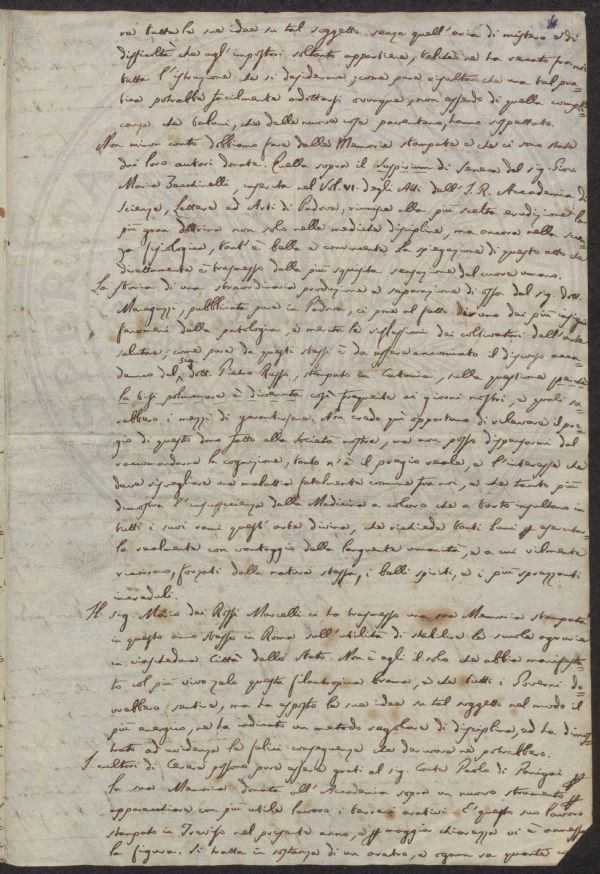 re tutte le sue idee su tal soggetto senza quell'aria di mistero e di
difficoltà che agl'impostori soltanto appartiene, talché ne ha recato fra noi
tutta l'istruzione che si desiderava; come pure risulta che una tal pra=
tica potrebbe facilmente adottarsi ovunque, non essendo di quella compli=
canza che taluni, che delle nuove cose paventano, hanno sospettato.
Non minor conto dobbiamo fare delle Memorie stampate e che ci sono state
dai loro autori donate. Quella sopra il suspirium di Seneca del sig. Gio:
Maria Zecchinelli, inserita nel Vol. VI degli Atti dell'I. R. Accademia di
Scienze, Lettere ed Arti di Padova, riunisce alla più scelta erudizione la
più gran dottrina non solo nelle mediche discipline, ma ancora nella scien
za fisiologica, tant'è bella e convincente la spiegazione di questo atto che
direttamente è trasmesso dalla più squisita sensazione del cuore umano.
La storia di una straordinaria produzione e separazione di ossa del sig. dott.
Meneguzzi, pubblicata pure in Padova, ci pone al fatto di uno dei più insigni
fenomeni della patologia, e merita le riflessioni dei coltivatori dell'arte
salutare; come pure da questi stessi è da essere encomiato il discorso acca=
demico del sig. dott. Pietro Russo, stampato in Catania, sulla questione perché
la tisi polmonare è divenuta così frequente ai giorni nostri, e quali sa=
rebbero i mezzi di garantirsene. Non credo quì opportuno di rilevare il pre=
gio di questo dono fatto alla Società nostra, ma non posso dispensarmi dal
raccomandarne la cognizione, tanto n'è il pregio reale, e l'interesse che
deve risvegliare una malattia fatalmente comune fra noi, e che tanto più
dimostra l'insufficienza della Medicina a coloro che a torto insultano in
tutti i suoi rami quest'arte divina, che richiede tanti lumi per esercitar=
la realmente con vantaggio della languente umanità, e a cui vilmente
ricorrono, forzati dalla natura stessa, i belli spiriti, e i più sprezzanti
increduli.
Il sig. Mario dei Rossi Marcelli ci ha trasmesso una sua Memoria stampata
in questo anno stesso in Roma sull'utilità di stabilire le scuole agrarie
in ciascheduna Città dello Stato. Non è egli il solo che abbia manifesta=
to col più vivo zelo questa filantropica brama, e che tutti i Governi do=
vrebbero sentire, ma ha esposto le sue idee su tal soggetto nel modo il
più energico, ne ha indicato un metodo regolare di disciplina, ed ha dimos=
trato ad evidenza le felici conseguenze che derivare ne potrebbero.
I cultori di Cerere possono pure essere grati al sig. Conte Paolo di Panigai per
la sua Memoria donata all'Accademia sopra un nuovo strumento per
apparecchiare con più utile lavoro i terreni arativi. È questo suo lavoro
stampato in Treviso nel presente anno, e per maggior chiarezza vi è annessa
la figura. Si tratta in sostanza di un aratro, e ognun sa quanto